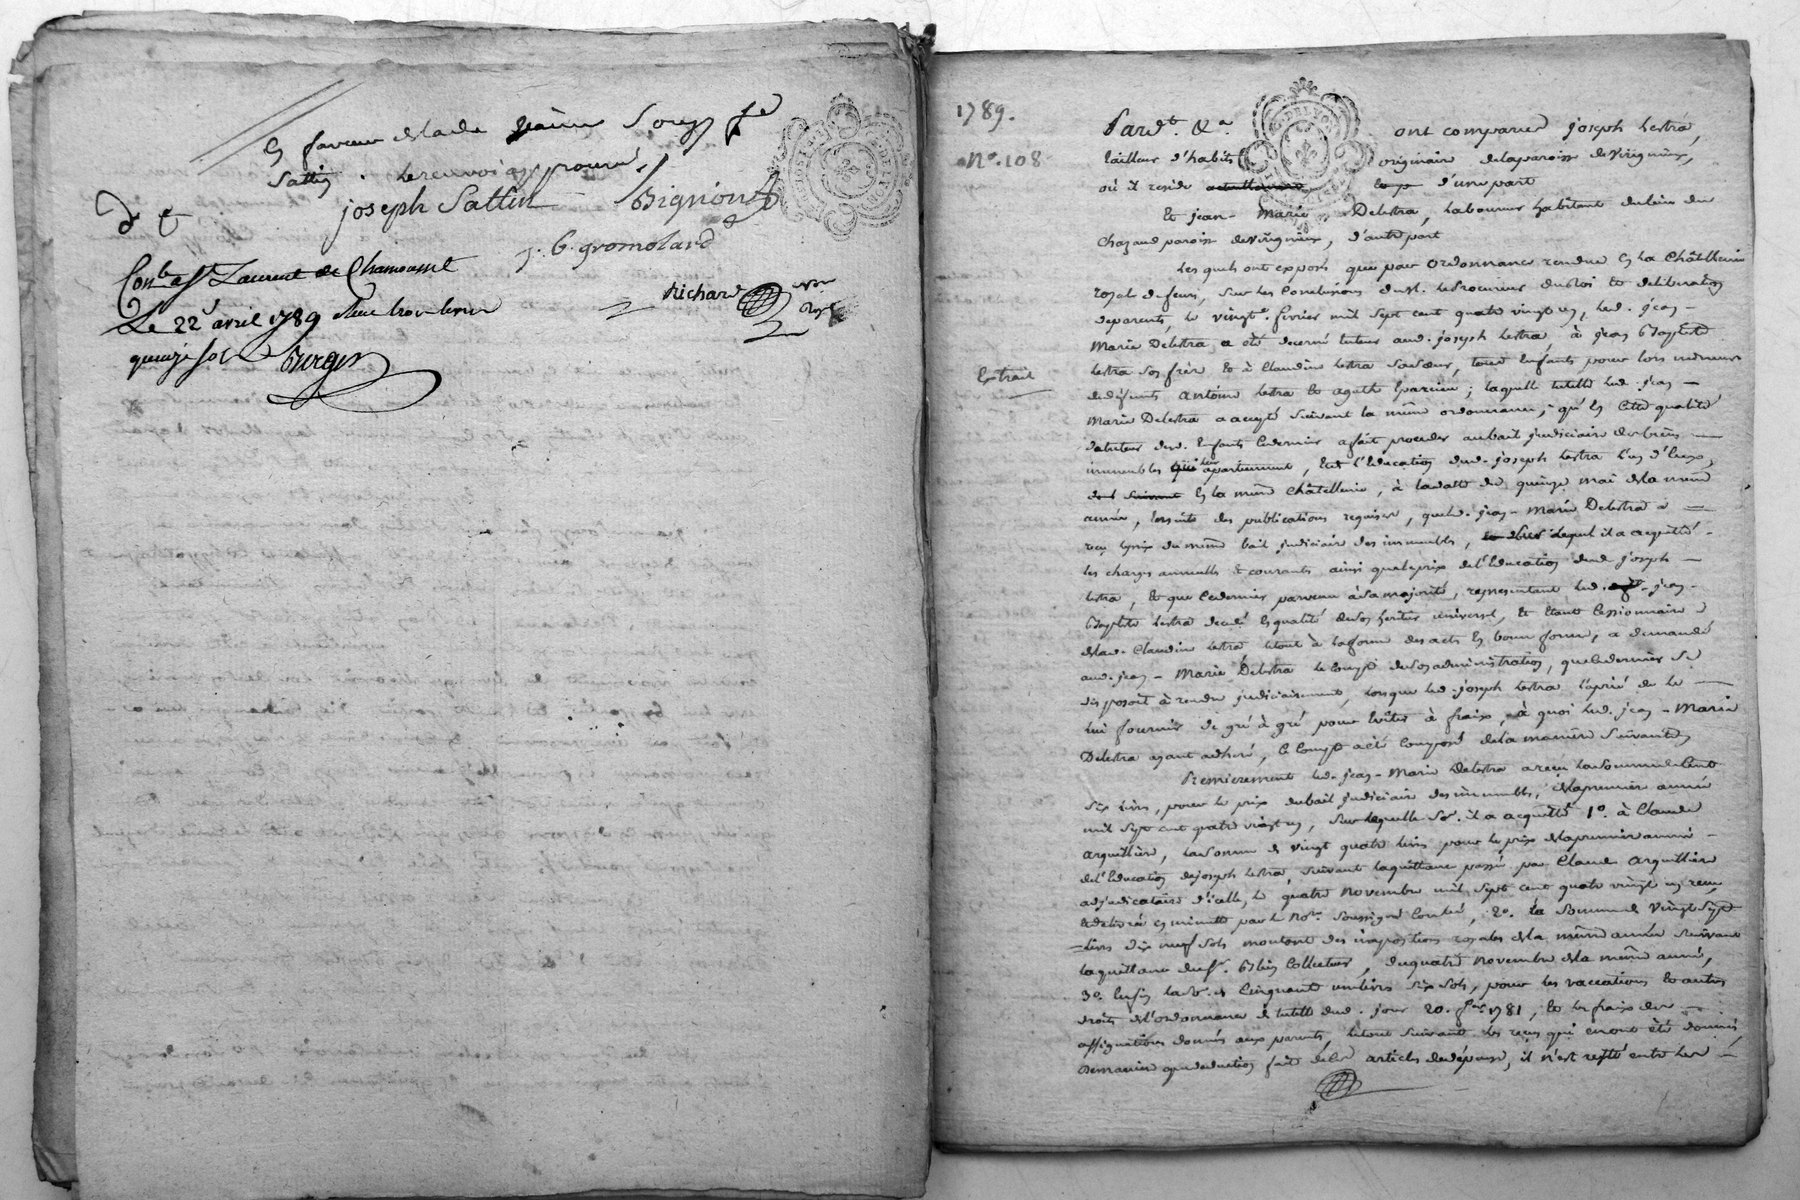 en faveur de lade jeanne Souzy fe
Sattin . le renvoi approuvé
joseph Sattin Bignon
J. B. gromolard
Richard nore Royal
Conlé a St Laurent de Chamousset
Le 22e avril 1789 Reçu
quinze sols Burgin
1789.
No. 108
Extrait
Pardt. &a. ont comparu joseph Lestra,
tailleur d'habits originaire de la paroisse de Virigneux,
où il reside d'une part
Et jean-Marie Delestra, Laboureur habitant du lieu du
Chazaud paroisse de Virigneux, d'autre part
Lesquels ont exposé que par ordonnance rendue en la Châtellenie
royale de feurs, sur les Conclusions de M. le Procureur du Roi et deliberation
de parents, le vingt fevrier mil sept cent quatre vingt un, led. jean-
Marie Delestra a été decerné tuteur aud. joseph Lestra, à jean Baptiste
Lestra son frère et à Claudine Lestra sa sœur, tous Enfants pour lors mineurs
de défunts Antoine Lestra et agathe Eparcieu; laquelle tutelle led. jean-
Marie Delestra a accepté suivant la même ordonnance; qu'en Cette qualité
de tuteur desd. Enfants Ce dernier a fait proceder au bail judiciaire des biens
immeubles leur apartenant, et l'Education dud. joseph Lestra l'un d'Eux,
en la même Châtellenie, à la datte du quinze mai de la même
année, Ensuite des publications requises, que led. jean-Marie Delestra a
reçu le prix du même bail judiciaire des immeubles, duquel il a acquitté
les charges annuelles et courants ainsi que le prix de l'Education dud. joseph
Lestra, Et que Ce dernier parvenu à sa majorité, representant led. jean-
Baptiste Lestra decedé En qualité de son heritier universel, Et Etant Cessionnaire
de lad. Claudine Lestra le tout à la forme des actes En bonne forme, a demandé
aud. jean-Marie Delestra le Compte de son administration, que Ce dernier se
disposoit à rendre judiciairement, lorsque led. joseph Lestra l'a prié de le
lui fournir de gré à gré pour Eviter à fraix, à quoi led. jean-Marie
Delestra ayant adheré, le Compte a été Composé de la manière suivante
Premierement led. jean-Marie Delestra a reçu la somme de Cent
six livres, pour le prix du bail judiciaire des immeubles, de la premiere année
mil sept cent quatre vingt un, sur laquelle Se. il a acquitté 1o. à Claude
Arquillière, la somme de vingt quatre livres pour le prix de la premiere année
de l'Education de joseph Lestra, suivant la quittance passée par Claude Arquillière
adjudicataire d'icelle, le quatre Novembre mil sept cent quatre vingt un reçue
et delivrée en minutte par le Nore. soussigné Conlée, 2o. la Somme de Vingt Sept
livres dix neuf sols montant des impositions royales de la même année suivant
la quittance du Sr. Collecteur, du quatre Novembre de la même année,
3o. Enfin la Se. de Cinquante un livres six sols, pour les vaccations et autres
droits de l'ordonnance de tutelle dud. jour 20. fer 1781, Et les fraix des
assignations données aux parents, le tout suivant les reçus qui en ont été donnés,
De maniere que deduction faite de Ces articles de dépense, il n'est resté entre les